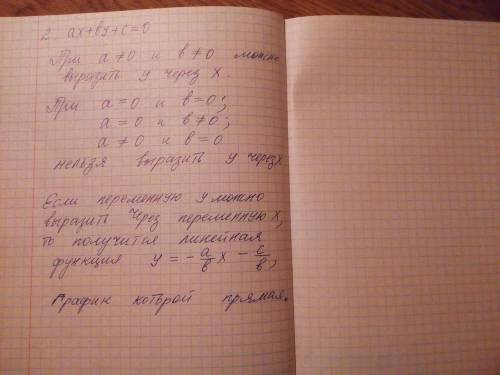 2. ax+by+c=0
При a≠0 и b≠0 можно
выразить y через x.
При a=0 и b=0;
a=0 и b≠0;
a≠0 и b=0
нельзя выразить y через x
Если переменную y можно
выразить через переменную x,
то получится линейная
функция y = -a/b x - c/b,
график которой прямая.